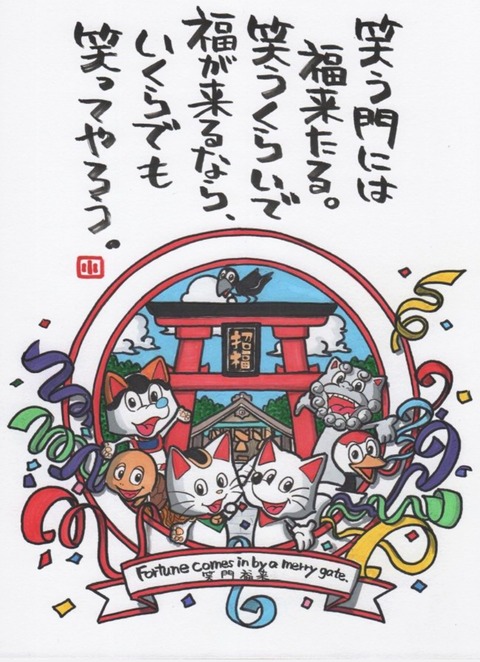 笑う門には
福来たる。
笑うくらいで
福が来るなら、
いくらでも
笑ってやろう。
小
招福
Fortune comes in by a merry gate.
笑門福来